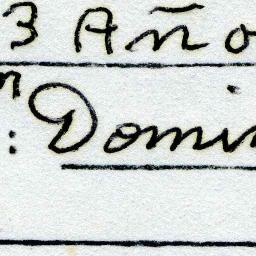 3 Año
: Domin